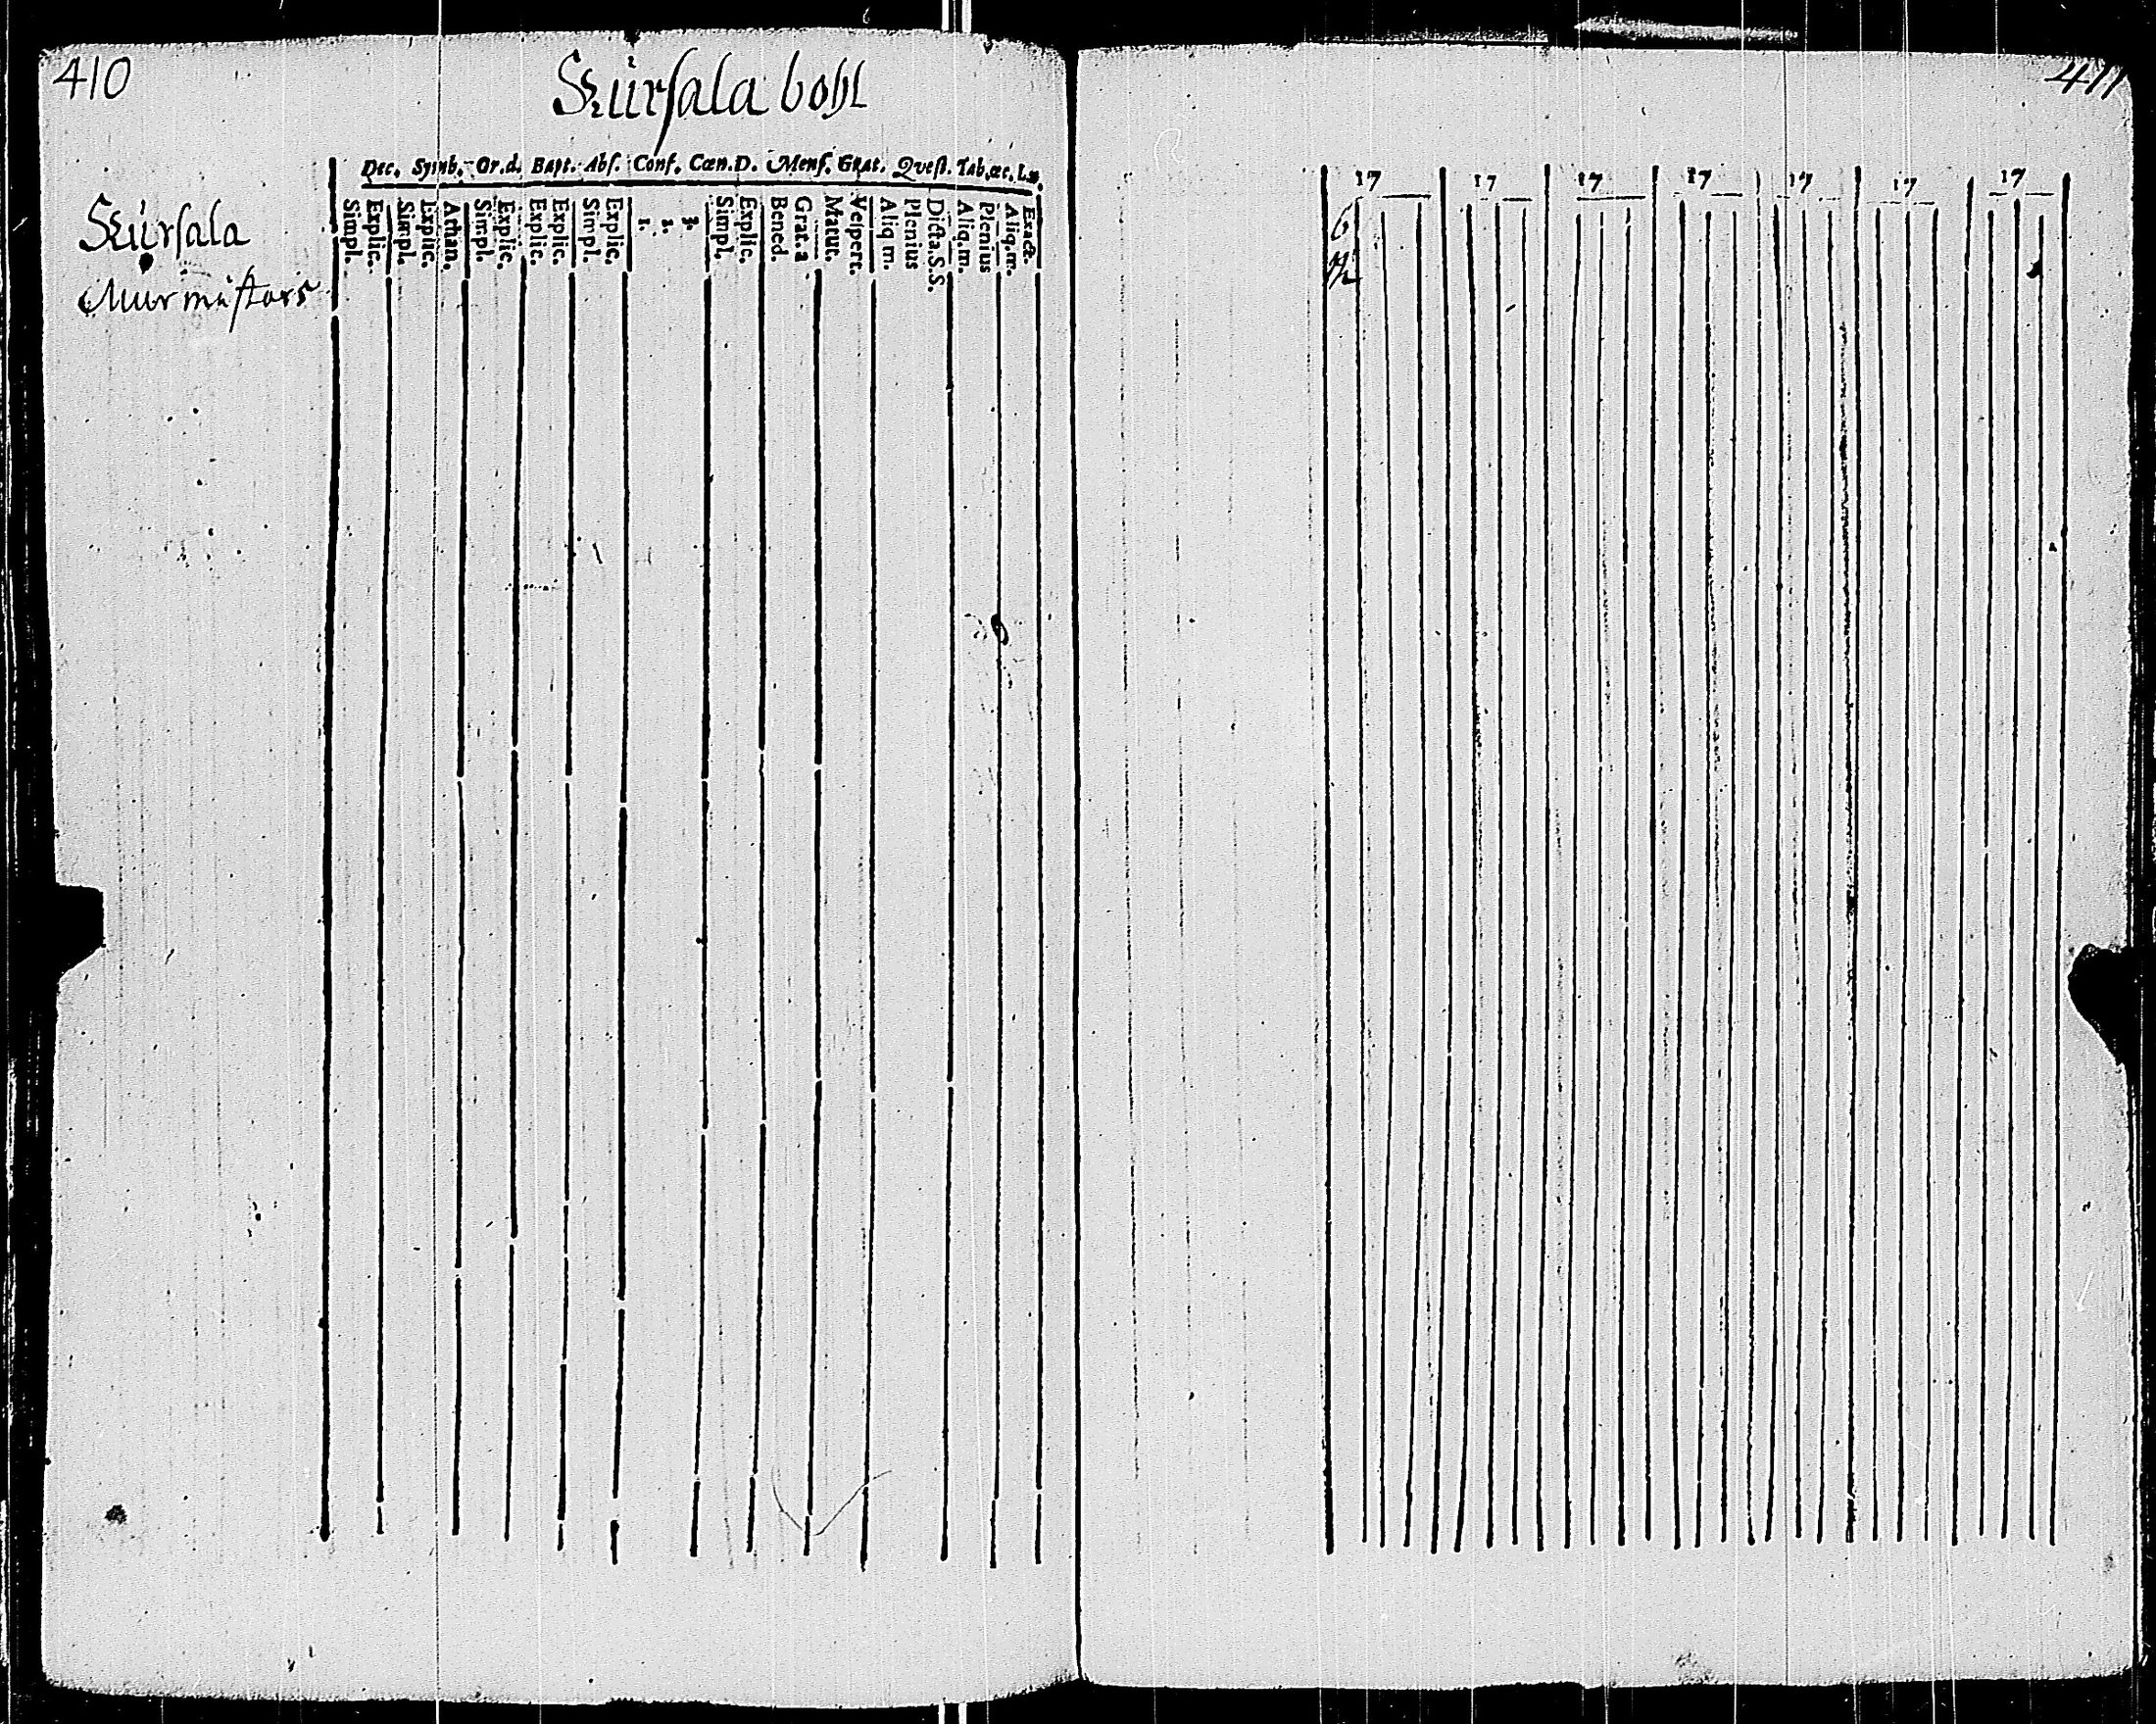 410
Skürsala bohl
Dec. Symb. Or.d. Bapt. Abs. Conf. Cœn.D. Mens. Grat. Qvest. Tab.œc. Lu.
Simpl.
Explic.
Simpl.
Explic.
Athan.
Simpl.
Explic.
Explic.
Explic.
Simpl.
Explic.
1.
2.
3.
Simpl.
Explic.
Bened.
Grat. a
Matut.
Vespert.
Aliq m.
Plenius
Dicta.S.S.
Aliq.m.
Plenius
Aliq.m.
Exacte.
Skürsala
Murmästars
411
17 17 17 17 17 17 17